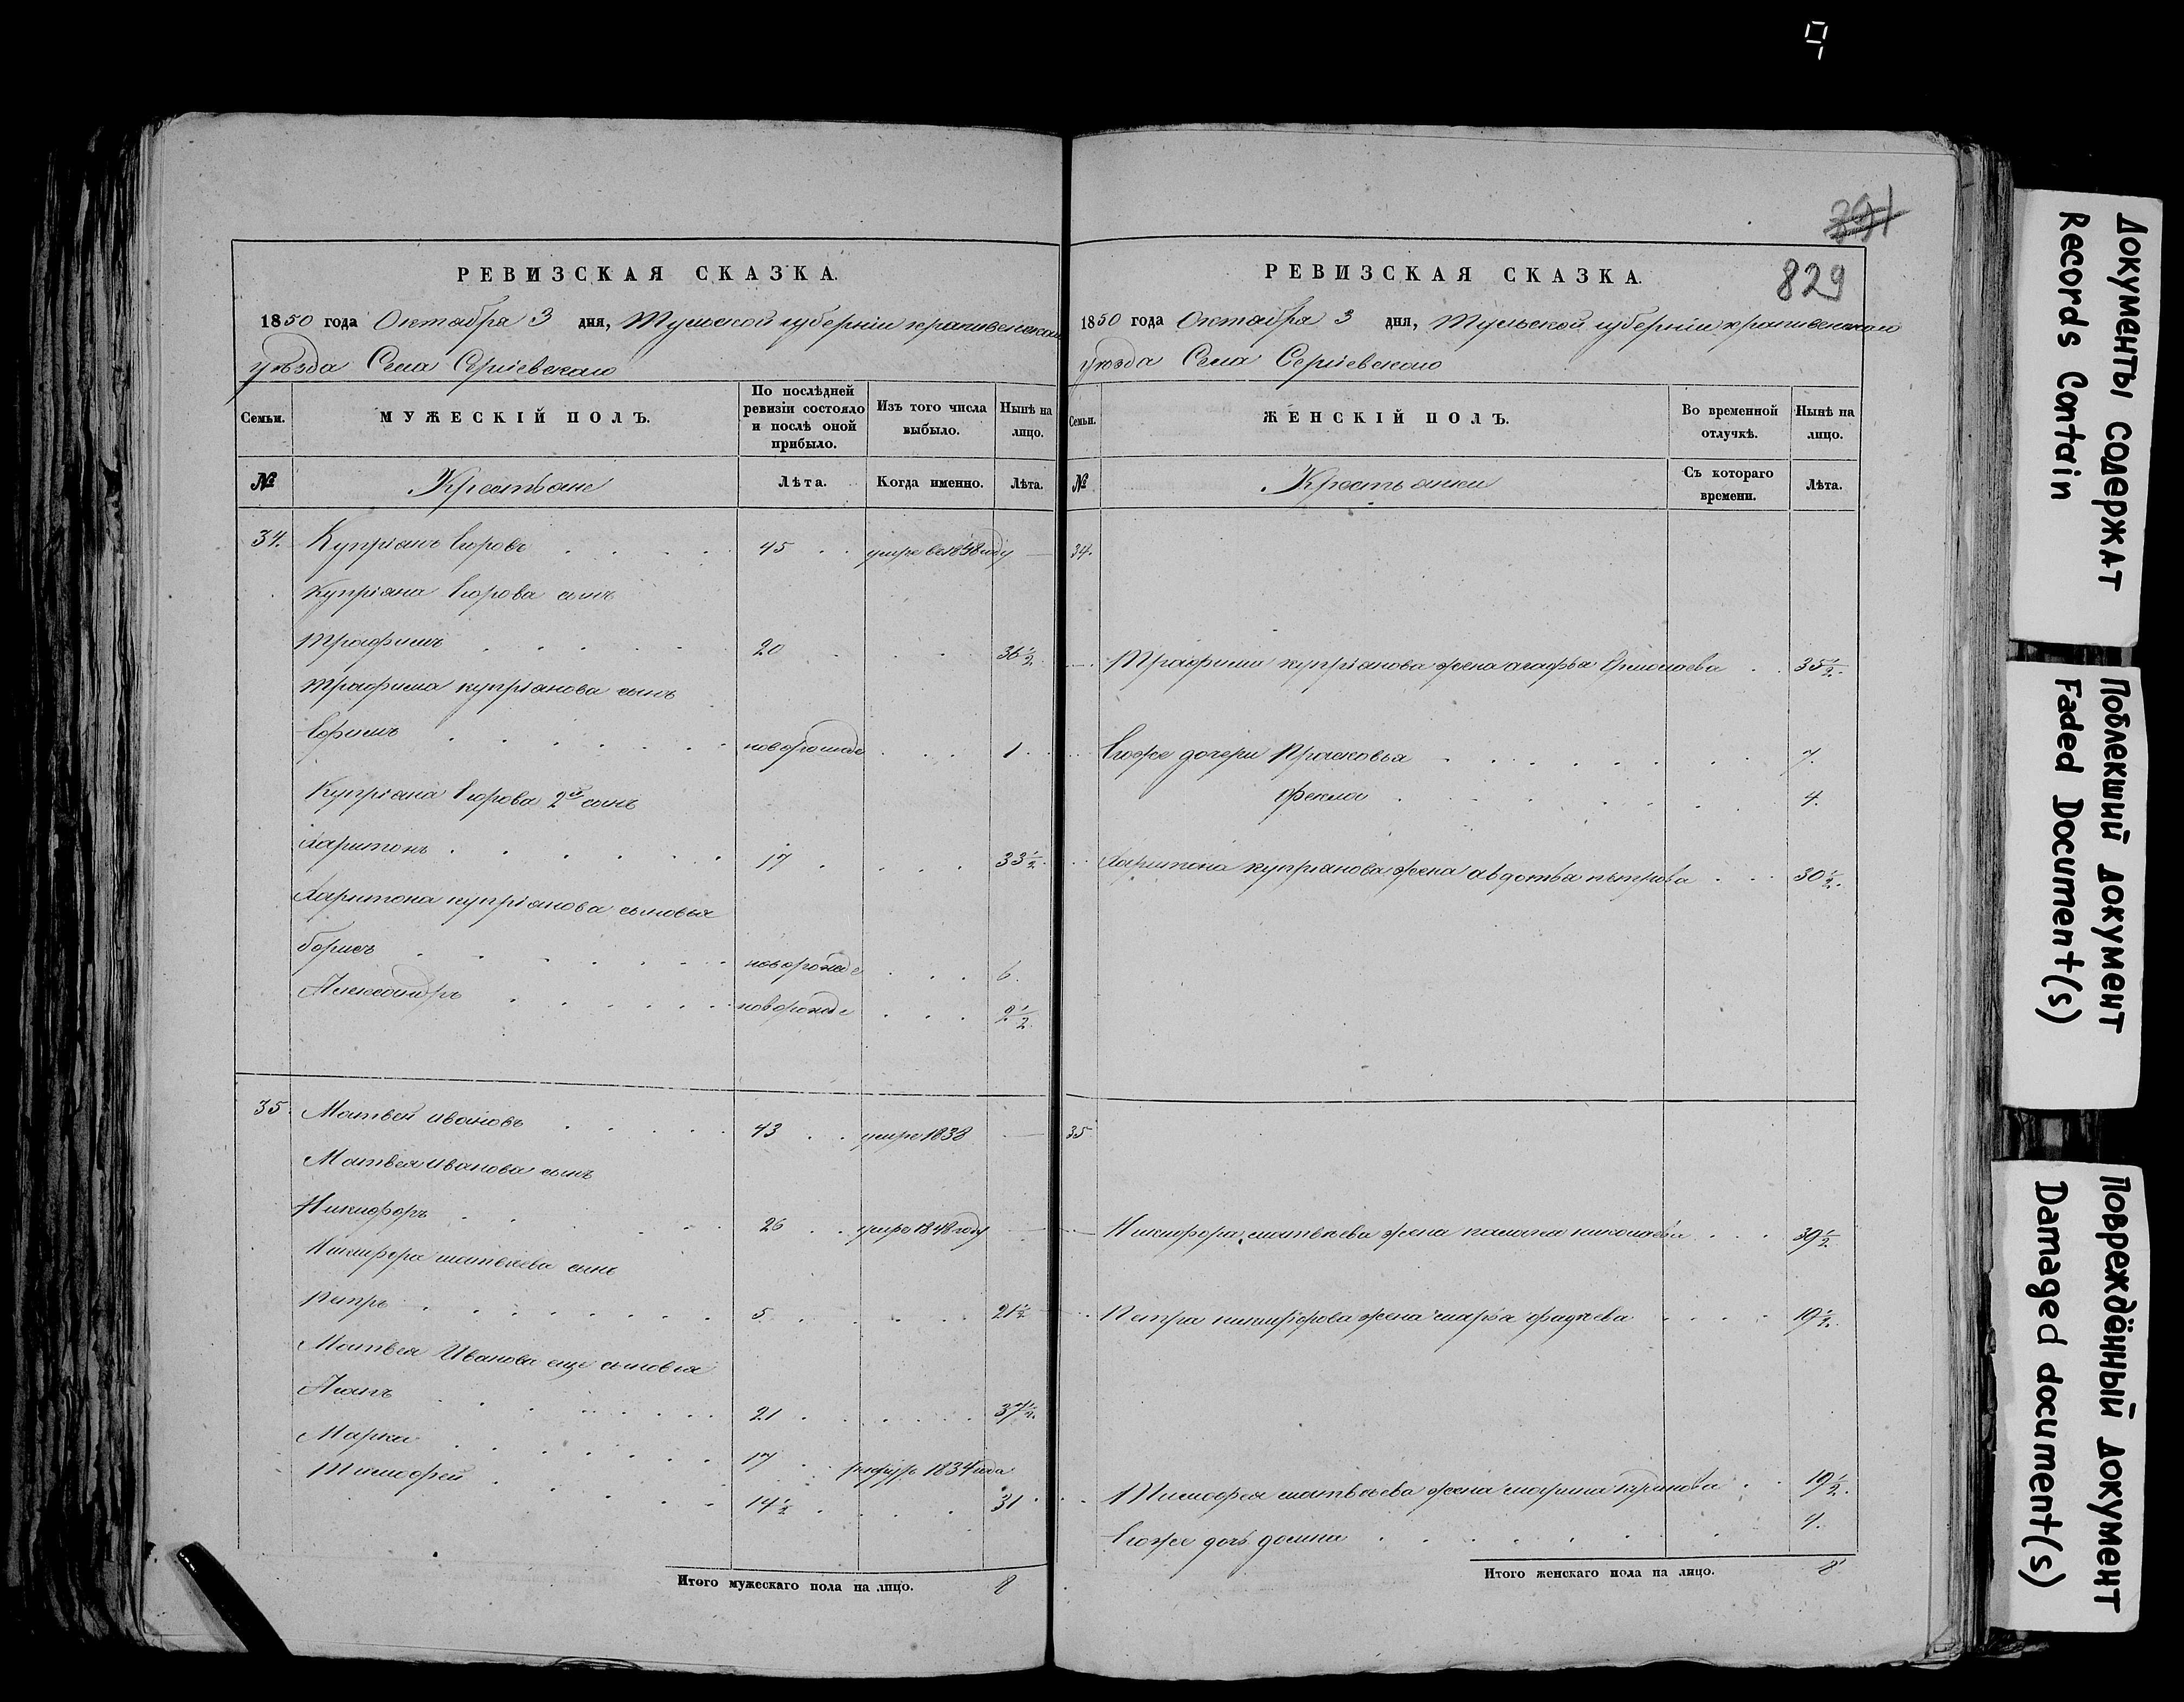 9
791
829
РЕВИЗСКАЯ СКАЗКА.
1850 года Октября 3 дня, Тульской губернии крапивенскаго
уѣзда Села Сергіевскаго
Семьи.
МУЖЕСКІЙ ПОЛЪ.
По послѣдней ревизіи состояло и послѣ оной прибыло.
Изъ того числа выбыло.
Нынѣ на лицо.
№
Крестьяне
Лѣта.
Когда именно.
Лѣта.
34. Купріанъ Егоровъ 45 умре въ 1848 году
Купріяна Егорова сынъ
Трофимъ 20 36 1/2
Трофима купріянова сынъ
Ефимъ новорожде 1
Купріана Егорова 2й сынъ
Харитонъ 17 33 1/2
Харитона купріанова сыновья
Борисъ новорожде 6.
Александръ новорожде 2 1/2
35. Матвей ивановъ 43 умре 1838
Матвея иванова сынъ
Никифоръ 26 умре 1848 году
Никифора матвѣева сынъ
Петръ 5 21 1/2
Матвея Иванова еще сыновья
Агапъ 21 37 1/2
Марка 17 1834 года
Тимофей 14 1/2 31
Итого мужескаго пола на лицо. 8
РЕВИЗСКАЯ СКАЗКА.
1850 года Октября 3 дня, Тульской губерніи крапивенскаго
уѣзда Села Сергіевскаго
Семьи.
ЖЕНСКІЙ ПОЛЪ.
Во временной отлучкѣ.
Нынѣ на лицо.
№
Крестьянки
Съ котораго времени.
Лѣта.
34.
Трофима купріянова жена агафья 35 1/2.
Егоже дочери Прасковья 7.
Фекла 4.
Харитона купріянова жена авдотья петрова 30 1/2.
35
Никифора матвѣева жена николаева 39 1/2
Петра никифорова жена марья фадѣева 19 1/2.
Тимофея матвѣева жена марина 19 1/2.
Егоже дочь домна 4.
Итого женскаго пола на лицо. 8
Документы содержат
Records Contain
Поблекший документ
Faded Document(s)
Повреждённый документ
Damaged document(s)